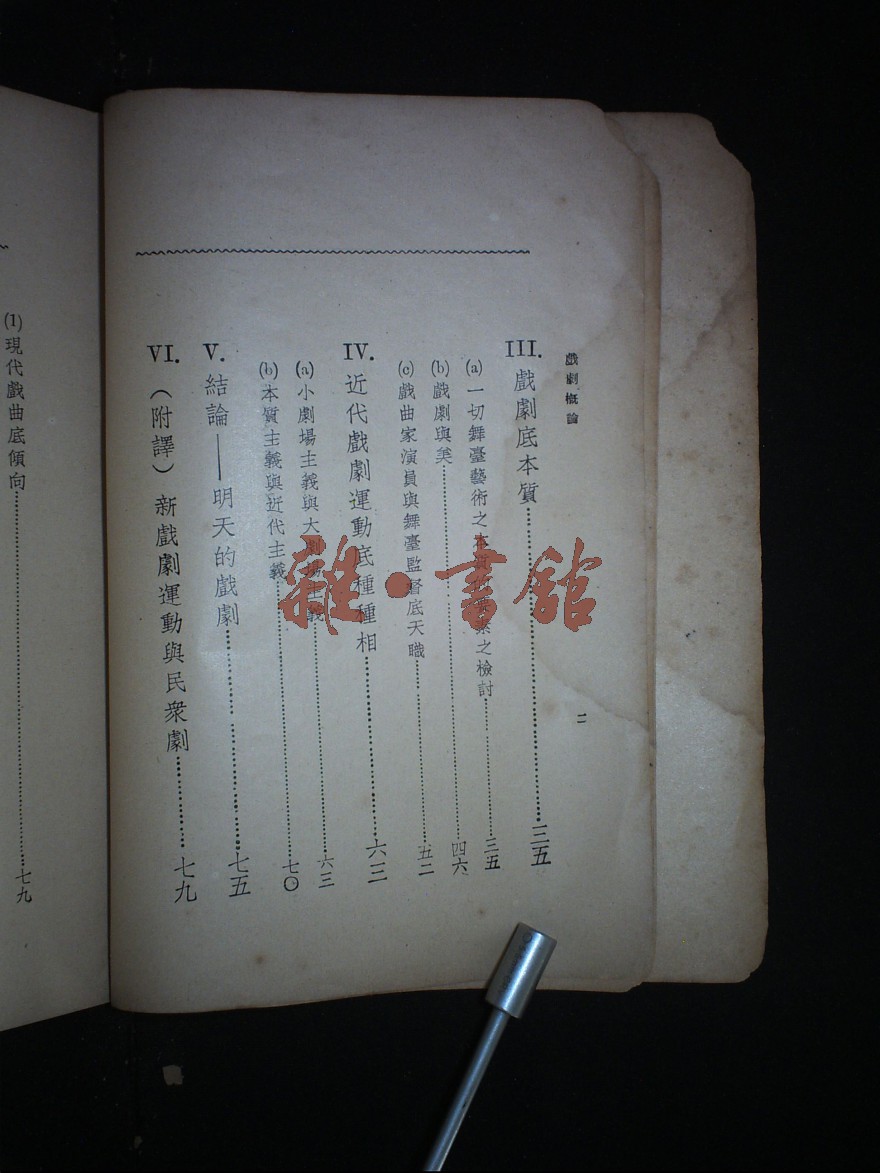 戲劇概論
二
III. 戲劇底本質……三五
(a) 一切舞臺藝術之本質素之檢討……三五
(b) 戲劇與美……四六
(c) 戲曲家演員與舞臺監督底天職……五二
IV. 近代戲劇運動底種種相……六三
(a) 小劇場主義與大劇場主義……六三
(b) 本質主義與近代主義……七〇
V. 結論——明天的戲劇……七五
VI. （附譯）新戲劇運動與民衆劇……七九
(1) 現代戲曲底傾向……七九
雜·書館